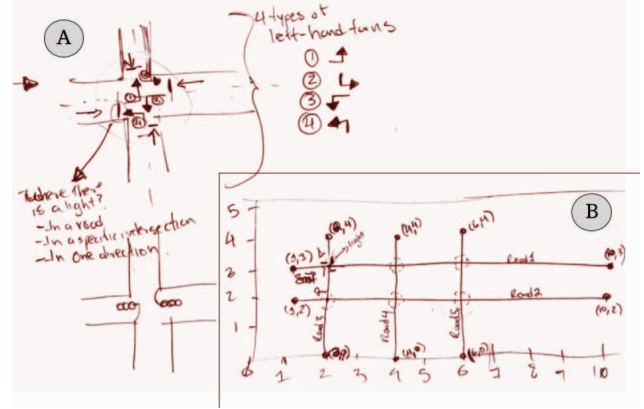 A
4 types of
left-hand turns
1
2
3
4
where there
is a light?
- In a road
- In a specific intersection
- In one direction
B
5
4
3
2
1
0 1 2 3 4 5 6 7 8 9 10
(2,4)
(4,4)
(6,4)
light
(1,3)
Road 1
(10,3)
(1,2)
Road 2
(10,2)
Road 3
Road 4
Road 5
(4,0)
(6,0)